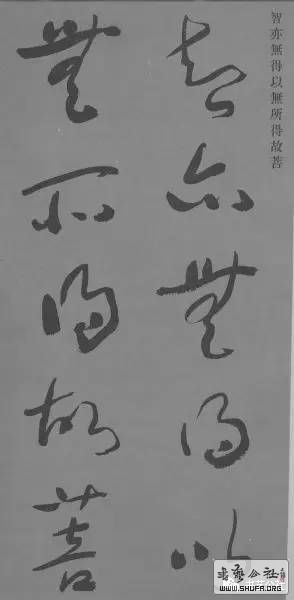 智亦無得以無所得故菩
智亦無得以
無所得故菩
書藝公社
WWW.SHUFA.ORG